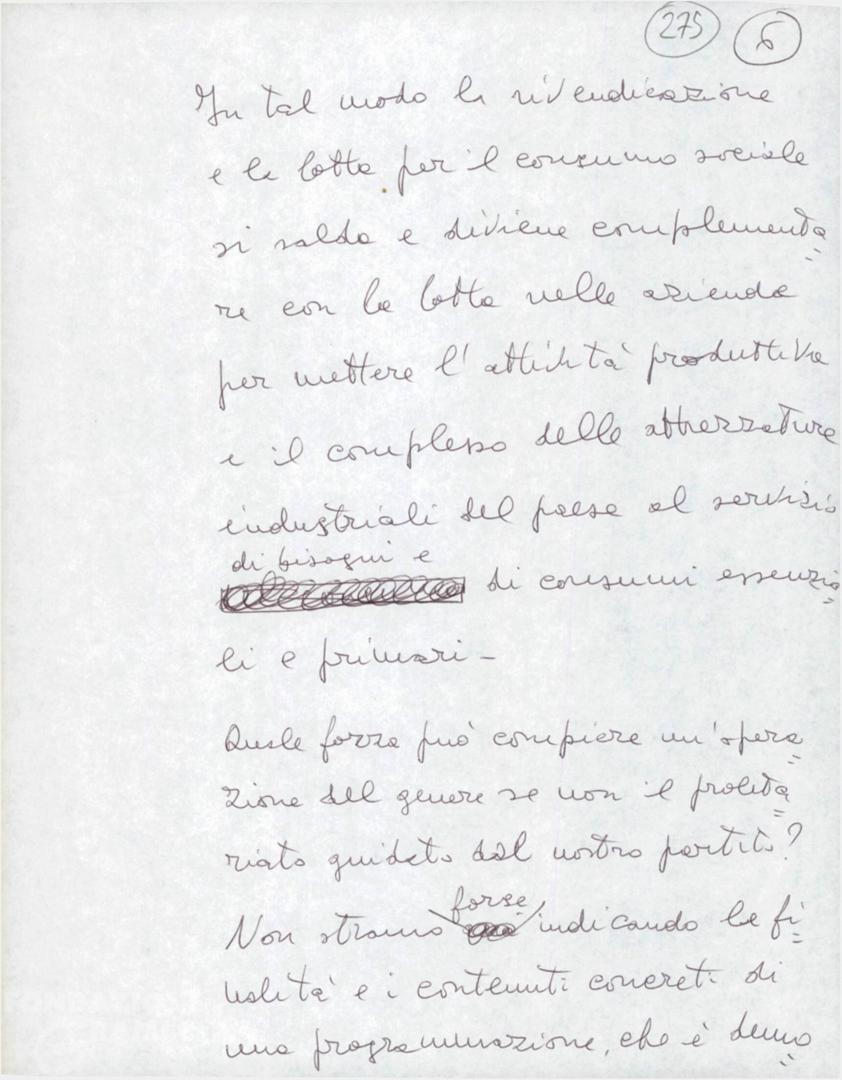 275 6
In tal modo la rivendicazione
e la lotta per il consumo sociale
si salda e diviene complementa=
re con la lotta nelle aziende
per mettere l'attività produttiva
e il complesso delle attrezzature
industriali del paese al servizio
di bisogni e
di consumi essenzia=
li e primari -
Quale forza può compiere un'opera=
zione del genere se non il proleta=
riato guidato dal nostro partito?
forse
Non stiamo indicando le fi=
nalità e i contenuti concreti di
una programmazione, che è demo=